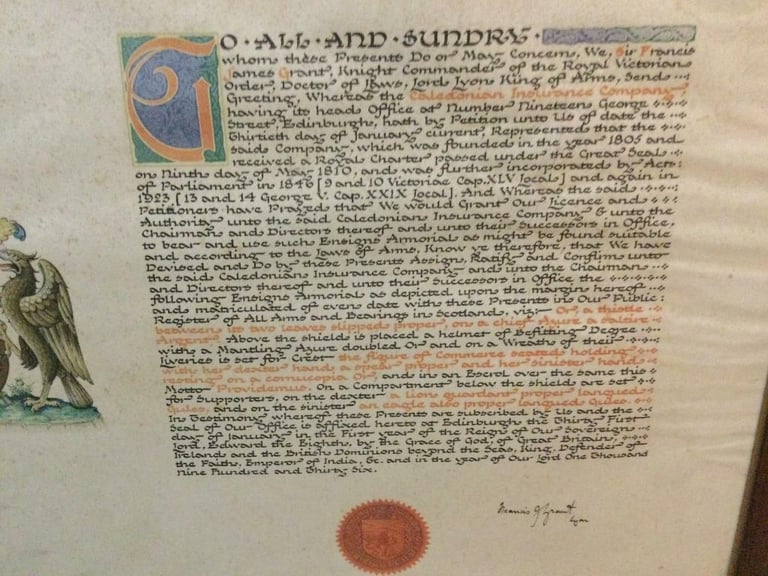 TO · ALL · AND · SUNDRY ·
whom these Presents Do or May Concern, We, Sir Francis
James Grant, Knight Commander of the Royal Victorian
Order, Doctor of Laws, Lord Lyon King of Arms, Sends
Greeting, Whereas the Caledonian Insurance Company,
having its head Office at Number Nineteen George
Street, Edinburgh, hath by Petition unto Us of date the
Thirtieth day of January current, Represented that the
said Company, which was founded in the year 1805 and
received a Royal Charter passed under the Great Seal
on Ninth day of May 1810, and was further incorporated by Acts
of Parliament in 1846 [9 and 10 Victoriae Cap. XLV Local] and again in
1923 [13 and 14 George V. Cap. XXIX Local]. And Whereas the said
Petitioners have Prayed that We would Grant Our Licence and
Authority unto the said Caledonian Insurance Company & unto the
Chairman and Directors thereof and unto their Successors in Office,
to bear and use such Ensigns Armorial as might be found suitable
and according to the Laws of Arms, Know ye therefore, that We have
Devised, and Do by these Presents Assign, Ratify and Confirm unto
the said Caledonian Insurance Company and unto the Chairman
and Directors thereof and unto their Successors in Office the
following Ensigns Armorial as depicted upon the margin hereof
and matriculated of even date with these Presents in Our Public
Register of All Arms and Bearings in Scotland, viz:- Or, a thistle
between its two leaves slipped proper, on a chief Azure a saltire
Argent. Above the shield is placed a helmet of Befitting Degree
with a Mantling Azure doubled Or and on a Wreath of their
Liveries is set for Crest the figure of Commerce seated holding
with her dexter hand a spear proper and her sinister hand
resting on a cornucopia Or, and in an Escrol over the same this
Motto Providemus. On a Compartment below the shield are set
for Supporters, on the dexter a lion guardant proper langued
Gules, and on the sinister an eagle also proper langued Gules.
In Testimony whereof these Presents are subscribed by Us and the
Seal of Our Office is affixed hereto at Edinburgh the Thirty First
day of January in the First year of the Reign of Our Sovereign
Lord, Edward the Eighth, by the Grace of God, of Great Britain,
Ireland and the British Dominions beyond the Seas, King, Defender of
the Faith, Emperor of India, &c. and in the year of Our Lord One Thousand
Nine Hundred and Thirty Six.
Francis J. Grant
Lyon